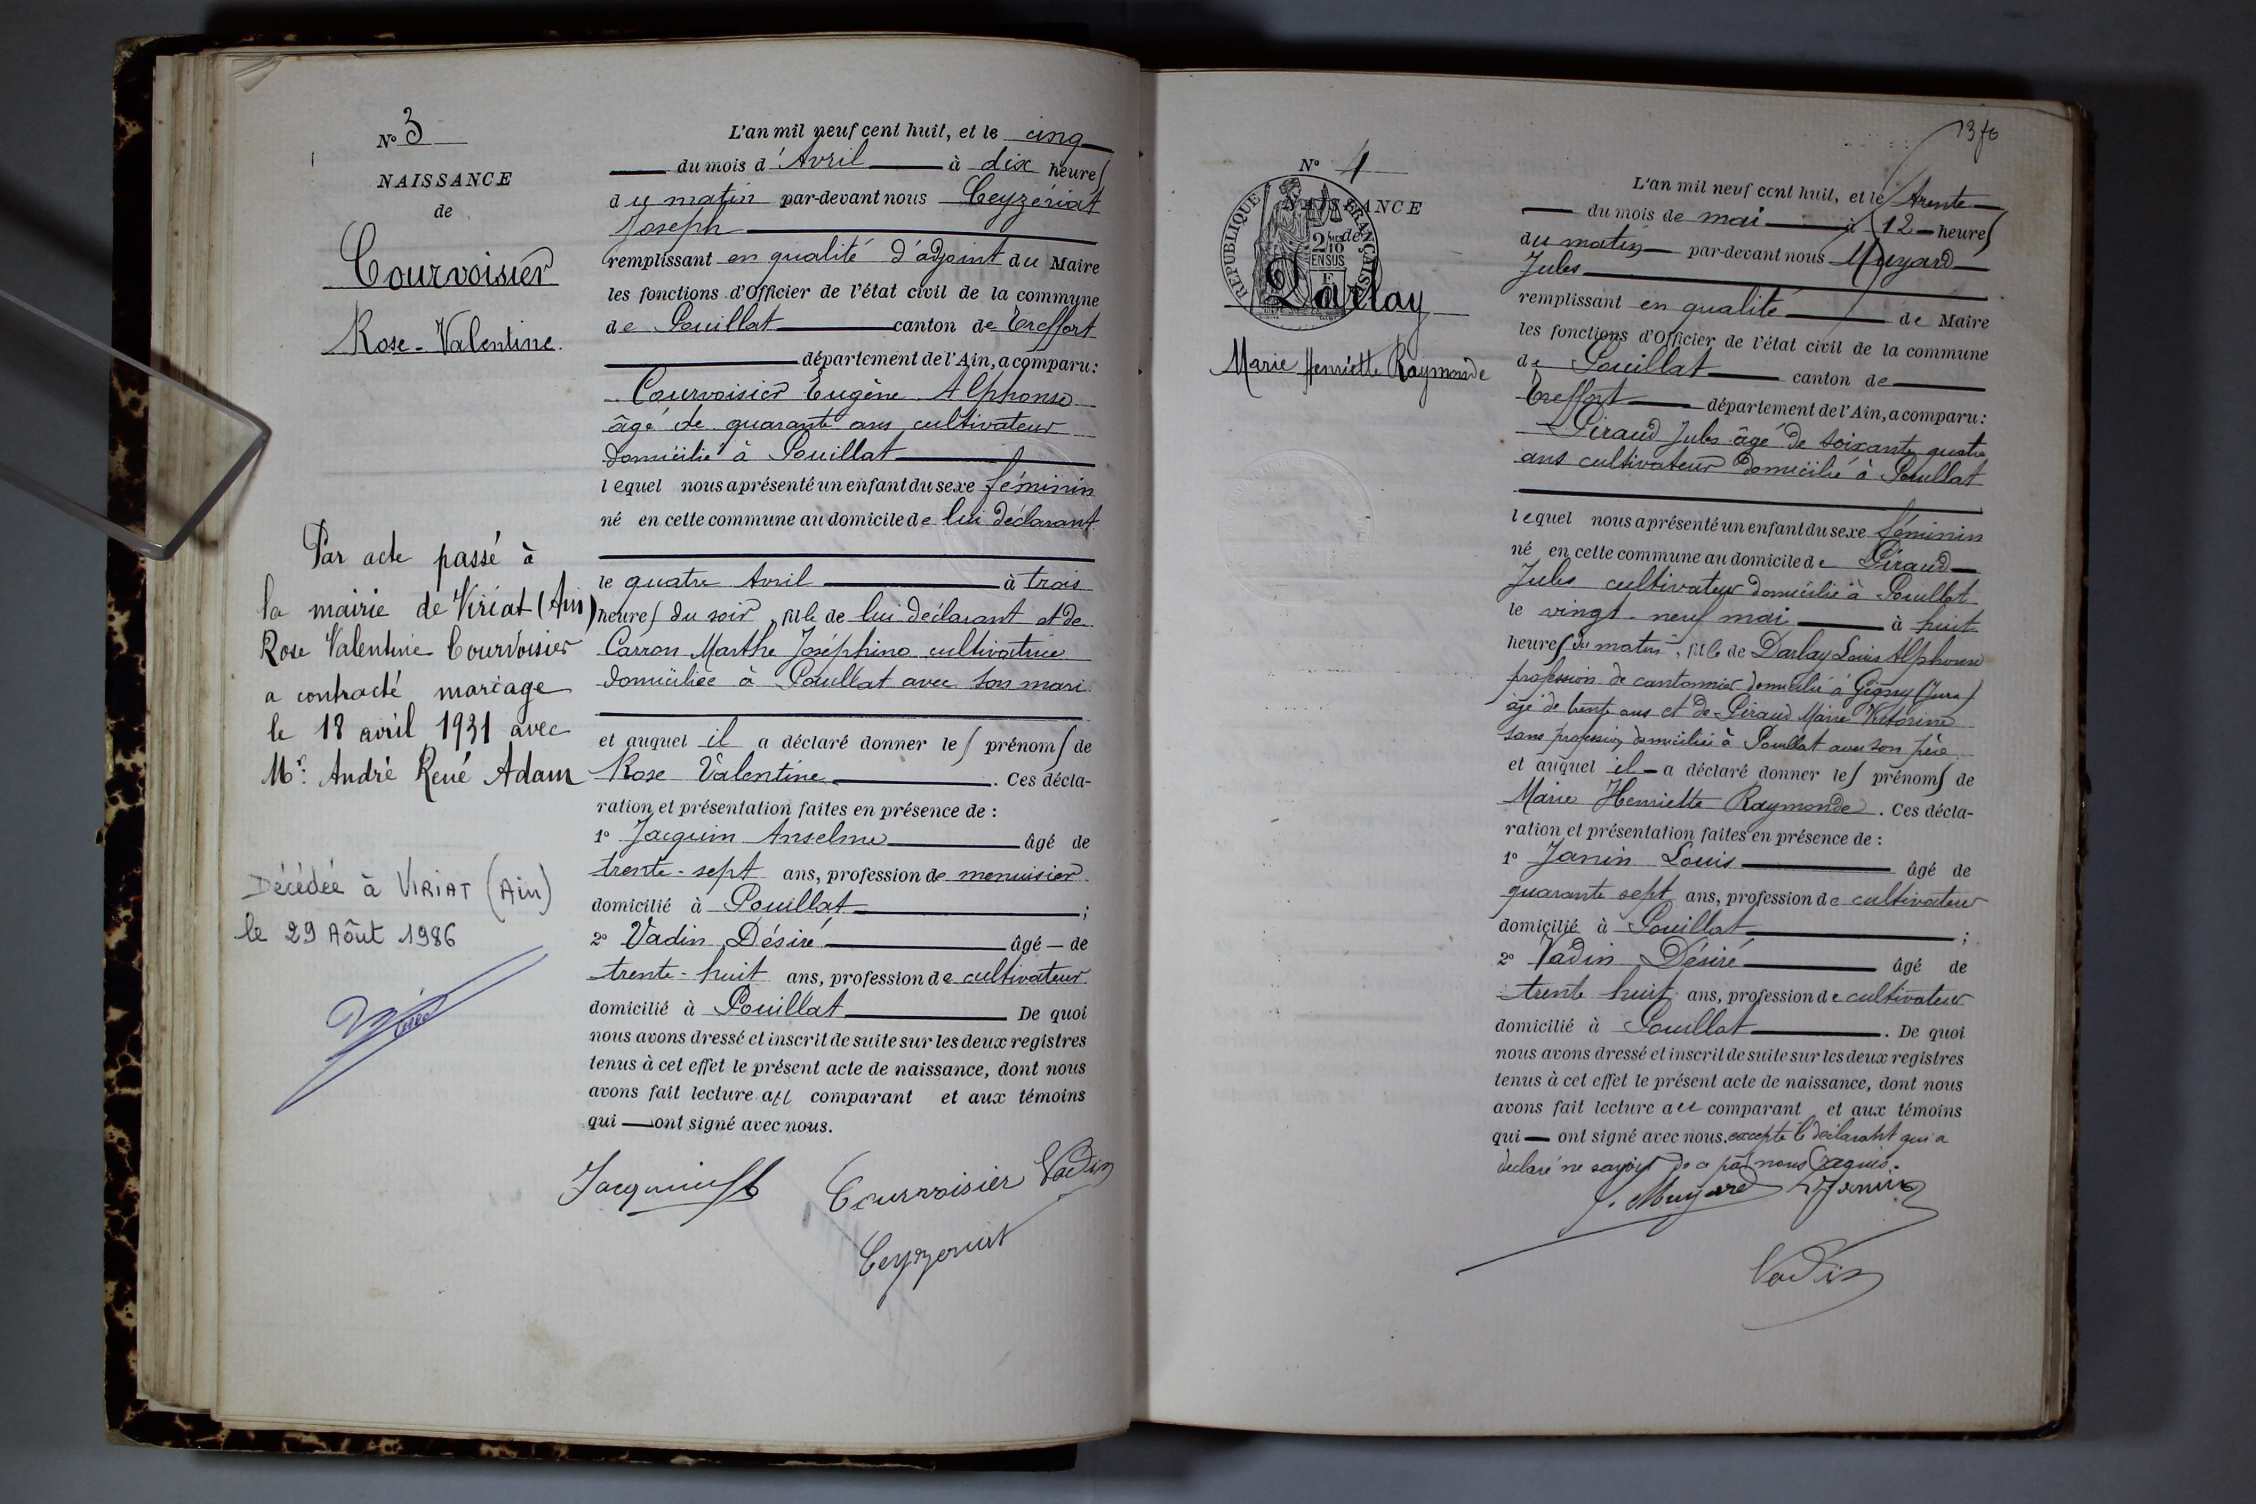 N° 3
NAISSANCE
de
Courvoisier
Rose-Valentine.
Par acte passé à
la mairie de Viriat (Ain)
Rose Valentine Courvoisier
a contracté mariage
le 18 avril 1931 avec
Mr. André René Adam
Décédée à VIRIAT (Ain)
le 29 Août 1986
L'an mil neuf cent huit, et le cinq
du mois d'Avril à dix heures
du matin par-devant nous Ceyzériat
Joseph
remplissant en qualité d'adjoint du Maire
les fonctions d'Officier de l'état civil de la commune
de Pouillat canton de Treffort
département de l'Ain, a comparu :
Courvoisier Eugène Alphonse
âgé de quarante ans cultivateur
domicilié à Pouillat
lequel nous a présenté un enfant du sexe féminin
né en cette commune au domicile de lui déclarant
le quatre Avril à trois
heures du soir, fille de lui déclarant et de
Carron Marthe Joséphine cultivatrice
domiciliée à Pouillat avec son mari
et auquel il a déclaré donner les prénoms de
Rose Valentine. Ces décla-
ration et présentation faites en présence de :
1° Jacquin Anselme âgé de
trente-sept ans, profession de menuisier
domicilié à Pouillat ;
2° Vadin Désiré âgé de
trente-huit ans, profession de cultivateur
domicilié à Pouillat De quoi
nous avons dressé et inscrit de suite sur les deux registres
tenus à cet effet le présent acte de naissance, dont nous
avons fait lecture au comparant et aux témoins
qui ont signé avec nous.
Jacquin Courvoisier Vadin
Ceyzeriat
N° 4
NAISSANCE
de
RÉPUBLIQUE FRANÇAISE
2/10
EN SUS
Darlay
Marie Henriette Raymonde
L'an mil neuf cent huit, et le trente
du mois de mai à 12 heures
du matin par-devant nous Muyard
Jules
remplissant en qualité de Maire
les fonctions d'Officier de l'état civil de la commune
de Pouillat canton de
Treffort département de l'Ain, a comparu :
Piraud Jules âgé de soixante quatre
ans cultivateur domicilié à Pouillat
lequel nous a présenté un enfant du sexe féminin
né en cette commune au domicile de Piraud
Jules cultivateur domicilié à Pouillat
le vingt-neuf mai à huit
heures du matin, fille de Darlay Louis Alphonse
profession de cantonnier domicilié à Gigny (Jura)
âgé de trente ans et de Piraud Marie Victorine
sans profession domiciliée à Pouillat avec son père
et auquel il a déclaré donner les prénoms de
Marie Henriette Raymonde. Ces décla-
ration et présentation faites en présence de :
1° Janin Louis âgé de
quarante sept ans, profession de cultivateur
domicilié à Pouillat ;
2° Vadin Désiré âgé de
trente huit ans, profession de cultivateur
domicilié à Pouillat. De quoi
nous avons dressé et inscrit de suite sur les deux registres
tenus à cet effet le présent acte de naissance, dont nous
avons fait lecture au comparant et aux témoins
qui ont signé avec nous. excepté le déclarant qui a
déclaré ne savoir de ce par nous requis.
J. Muyard L Janin
Vadin